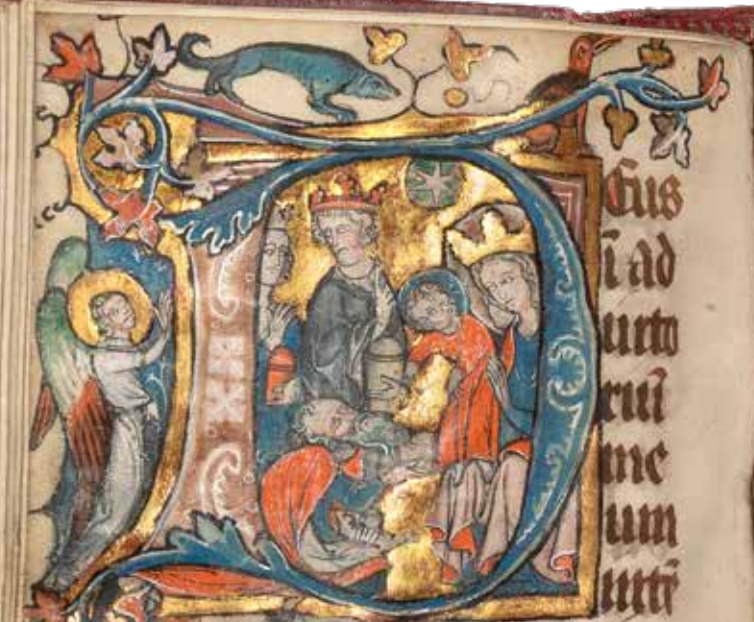 Deus
ī ad
iuto
riū
me
um
intē